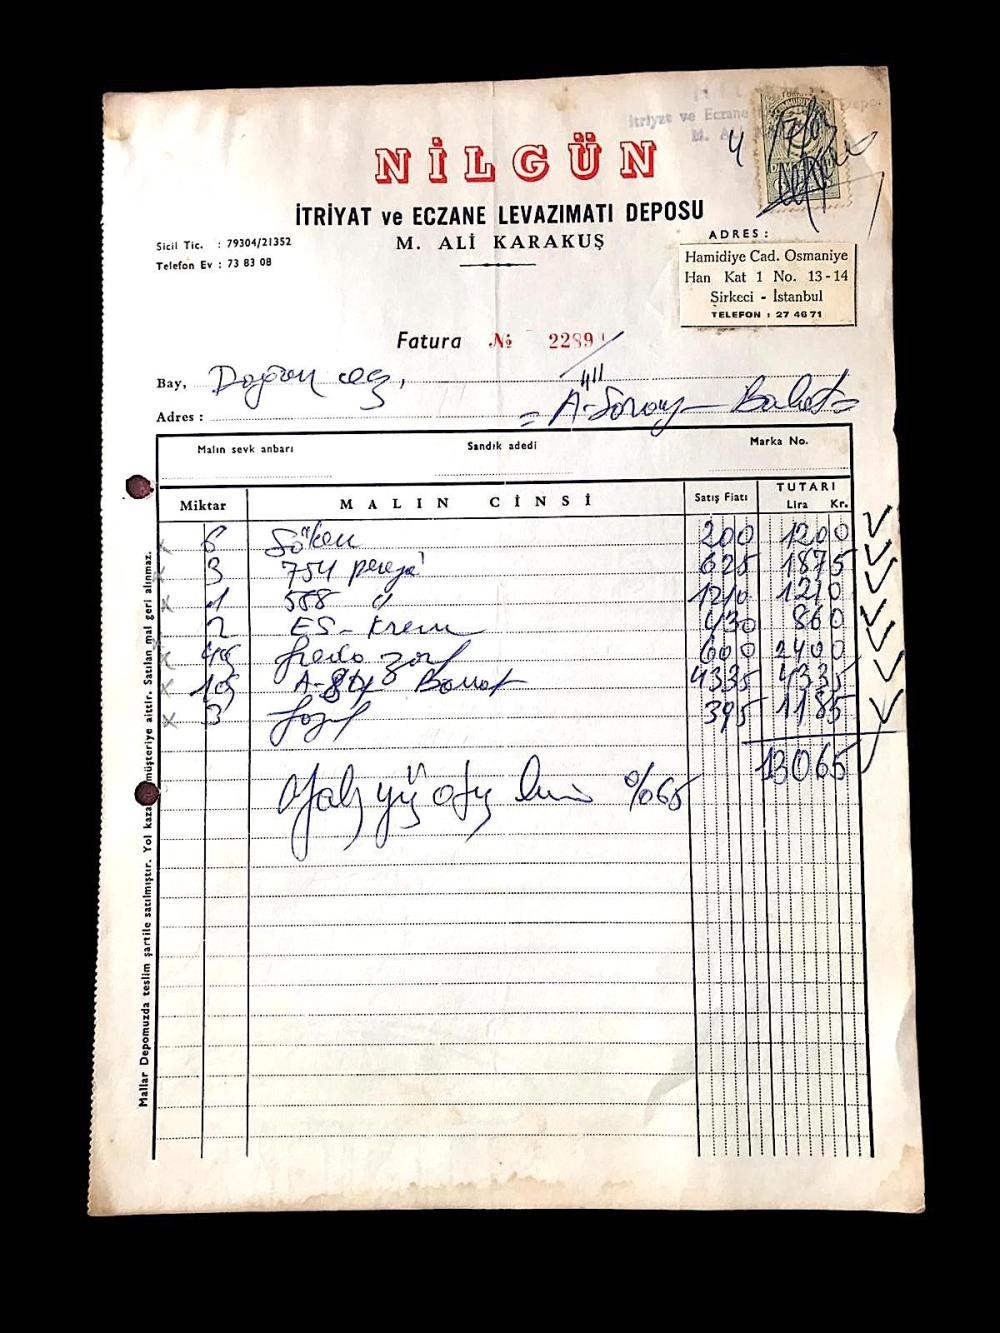 itriyat ve Eczane Depo
NİLGÜN
İTRİYAT ve ECZANE LEVAZIMATI DEPOSU
M. ALİ KARAKUŞ
Sicil Tic. : 79304/21352
Telefon Ev : 73 83 08
ADRES :
Hamidiye Cad. Osmaniye
Han Kat 1 No. 13-14
Şirkeci - İstanbul
TELEFON : 27 46 71
Fatura № 2289
Bay, Doğan ecz,
Adres : = A-Saray - Balat =
Malın sevk anbarı Sandık adedi Marka No.
Miktar MALIN CİNSİ Satış Fiatı TUTARI
Lira Kr.
6 Söken 200 1200
3 754 pereja 625 1875
1 588 " 1210 1210
2 ES-Krem 430 860
600 2400
4335 4335
3 395 1185
13065
%65
Mallar Depomuzda teslim şartile satılmıştır. Yol kaza müşteriye aittir. Satılan mal geri alınmaz.